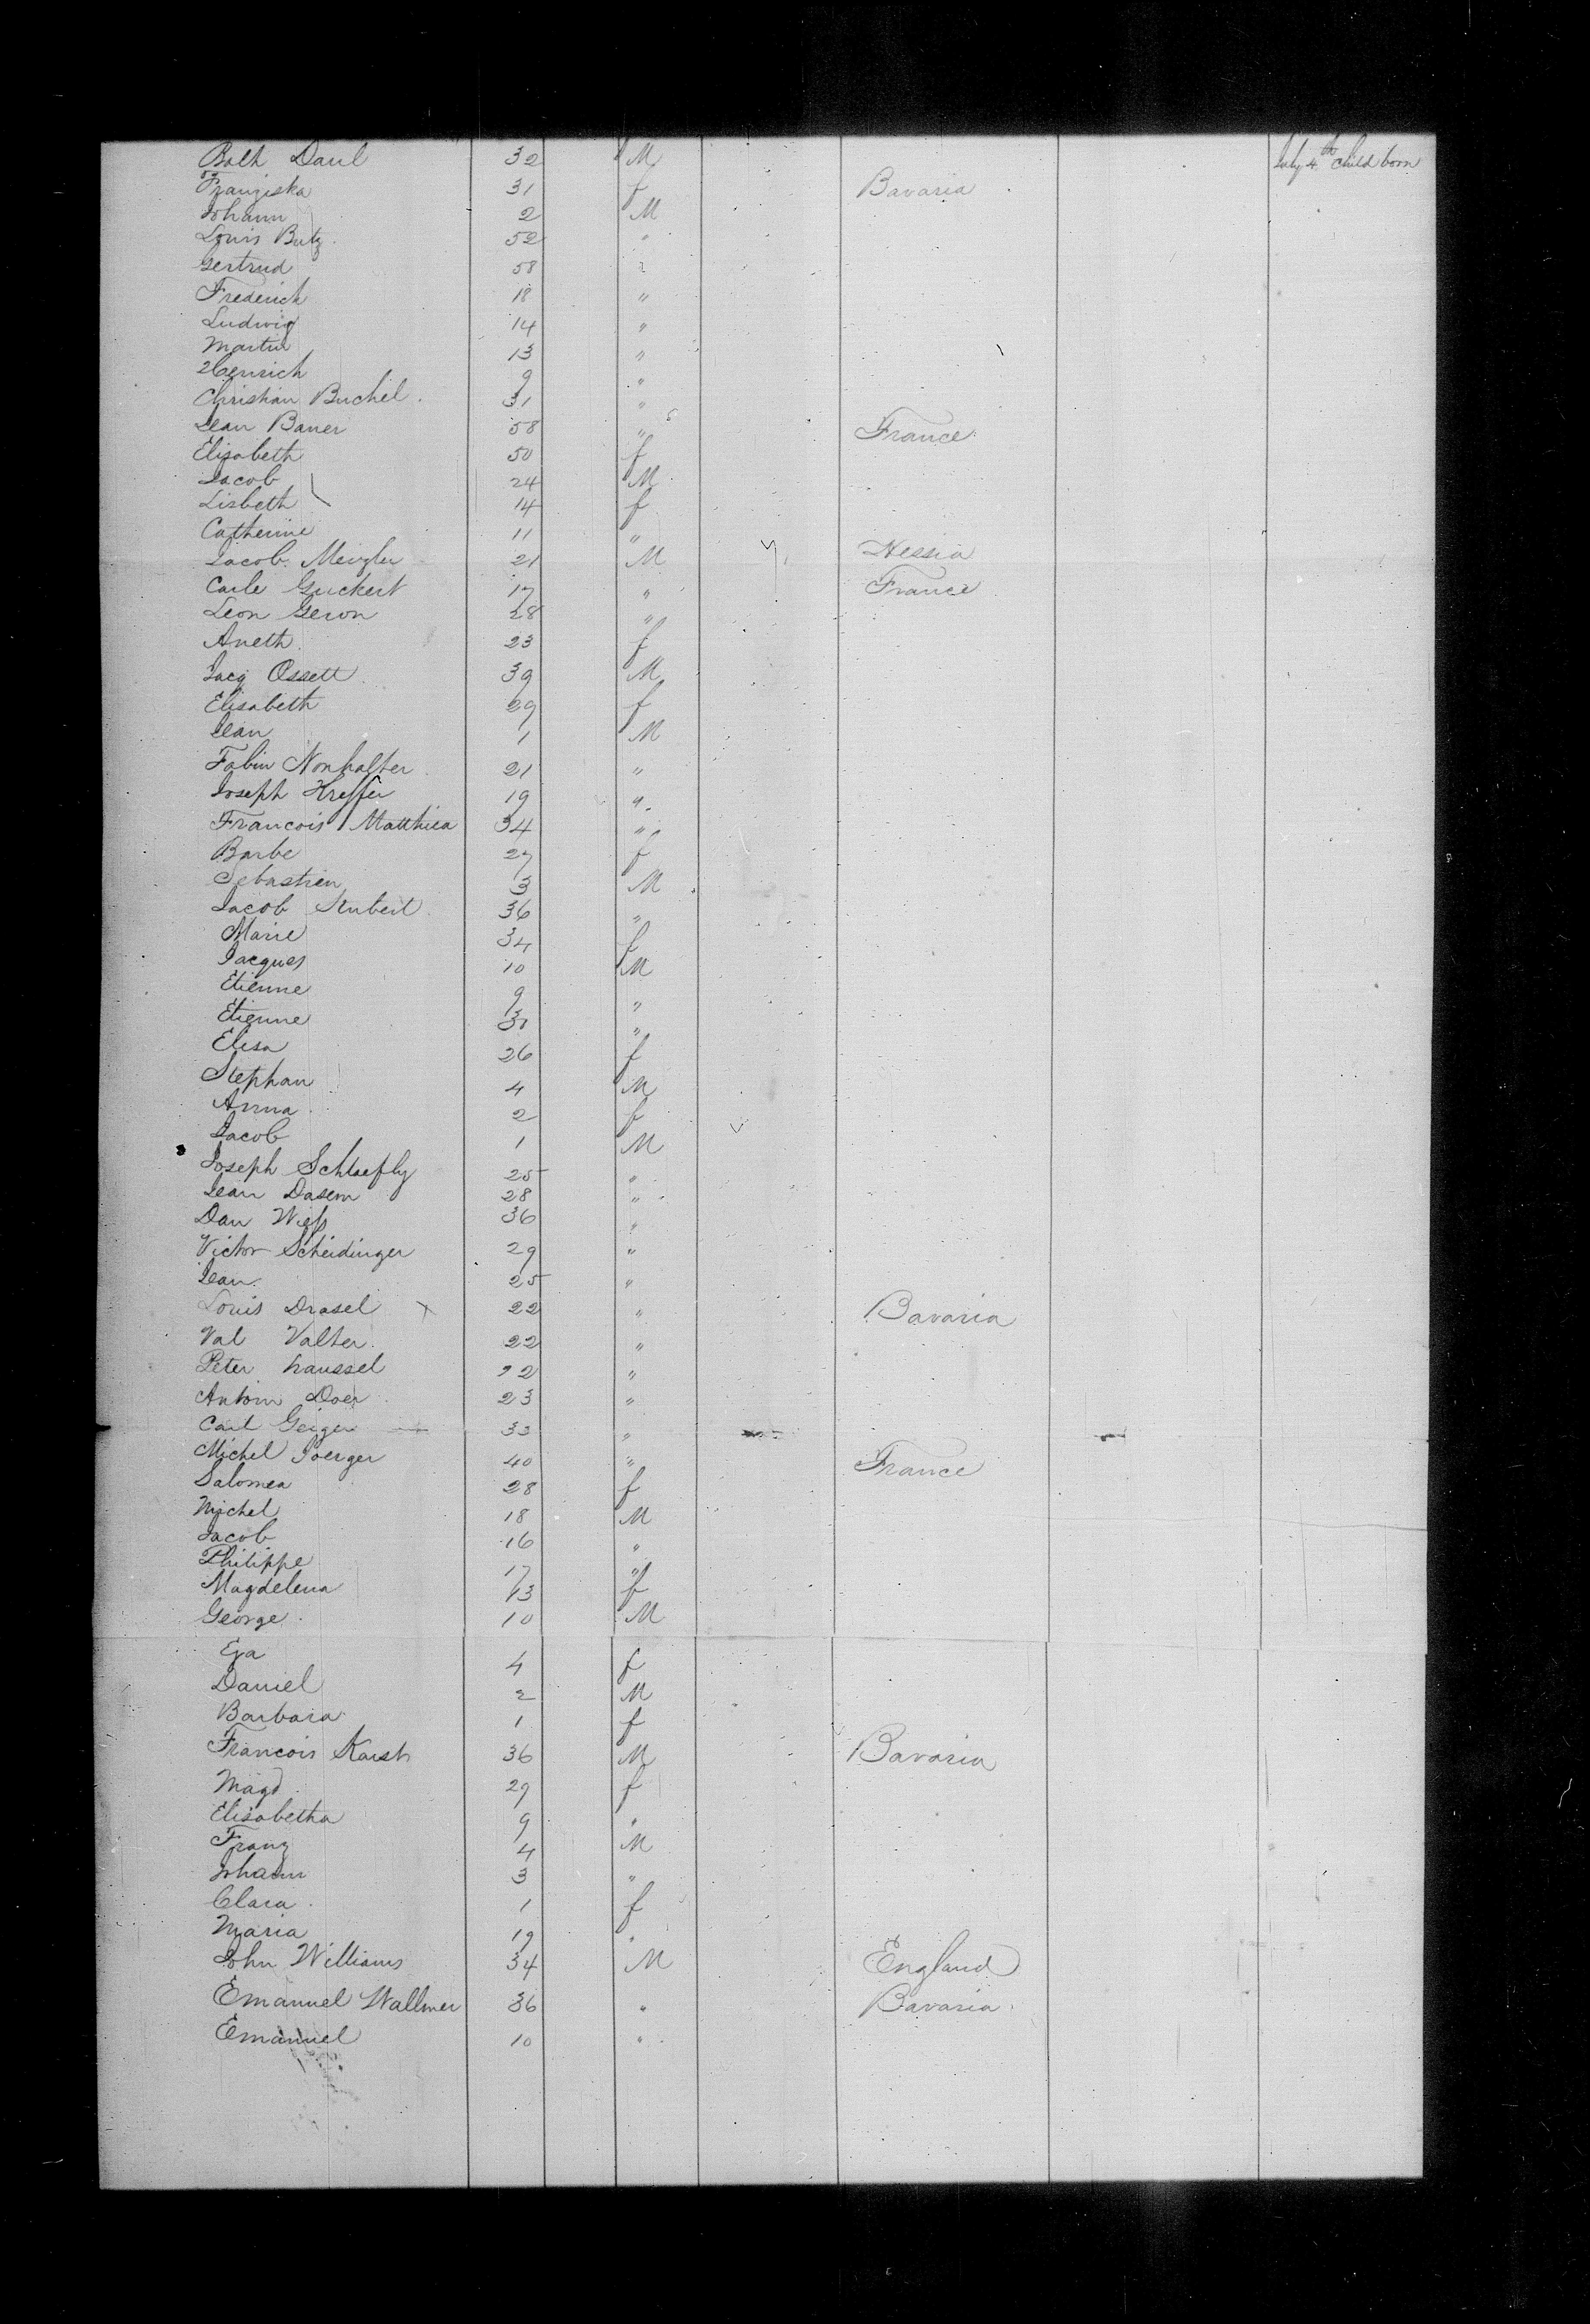 Balt Daul 32 M July 4th Child born
Franziska 31 f Bavaria
Johann 2 M
Louis Butz 52 "
Gertrud 58
Frederich 18 "
Ludwig 14 "
Martin 13 "
Heinrich 9 "
Christian Buchel 31 "
Jean Bauer 58 " France
Elisabeth 50 f
Jacob 24 M
Lisbeth 14 f
Catherine 11 "
Jacob Mengler 21 M Hessia
Carle Guckert 17 " France
Leon Geron 28 "
Aneth 23 f
Jacq Ossett 39 M
Elisabeth 29 f
Jean 1 M
Fabin Nonhalter 21 "
Joseph Kreffer 19 "
Francois Matthiea 34 "
Barbe 27 f
Sebastien 3 M
Jacob Stubert 36 "
Marie 34 f
Jacques 10 M
Etienne 9 "
Etienne 31 "
Elisa 26 f
Stephan 4 M
Anna 2 f
Jacob 1 M
Joseph Schlaefly 25 "
Jean Dasem 28 "
Dan Weß 36 "
Victor Scheidinger 29 "
Jean 25 "
Louis Drasel 22 " Bavaria
Val Valter 22 "
Peter haussel 22 "
Antoin Doer 23 "
Carl Geiger 33 "
Michel Joerger 40 " France
Salomea 28 f
Michel 18 M
Jacob 16 "
Philippe 17 "
Magdelena 13 f
George 10 M
Eva 4 f
Daniel 2 M
Barbara 1 f
Francois Karst 36 M Bavaria
Magd 29 f
Elisabetha 9 "
Franz 4 M
Johann 3 "
Clara 1 f
Maria 19 "
John Williams 34 M England
Emanuel Wallmer 36 " Bavaria
Emanuel 10 "